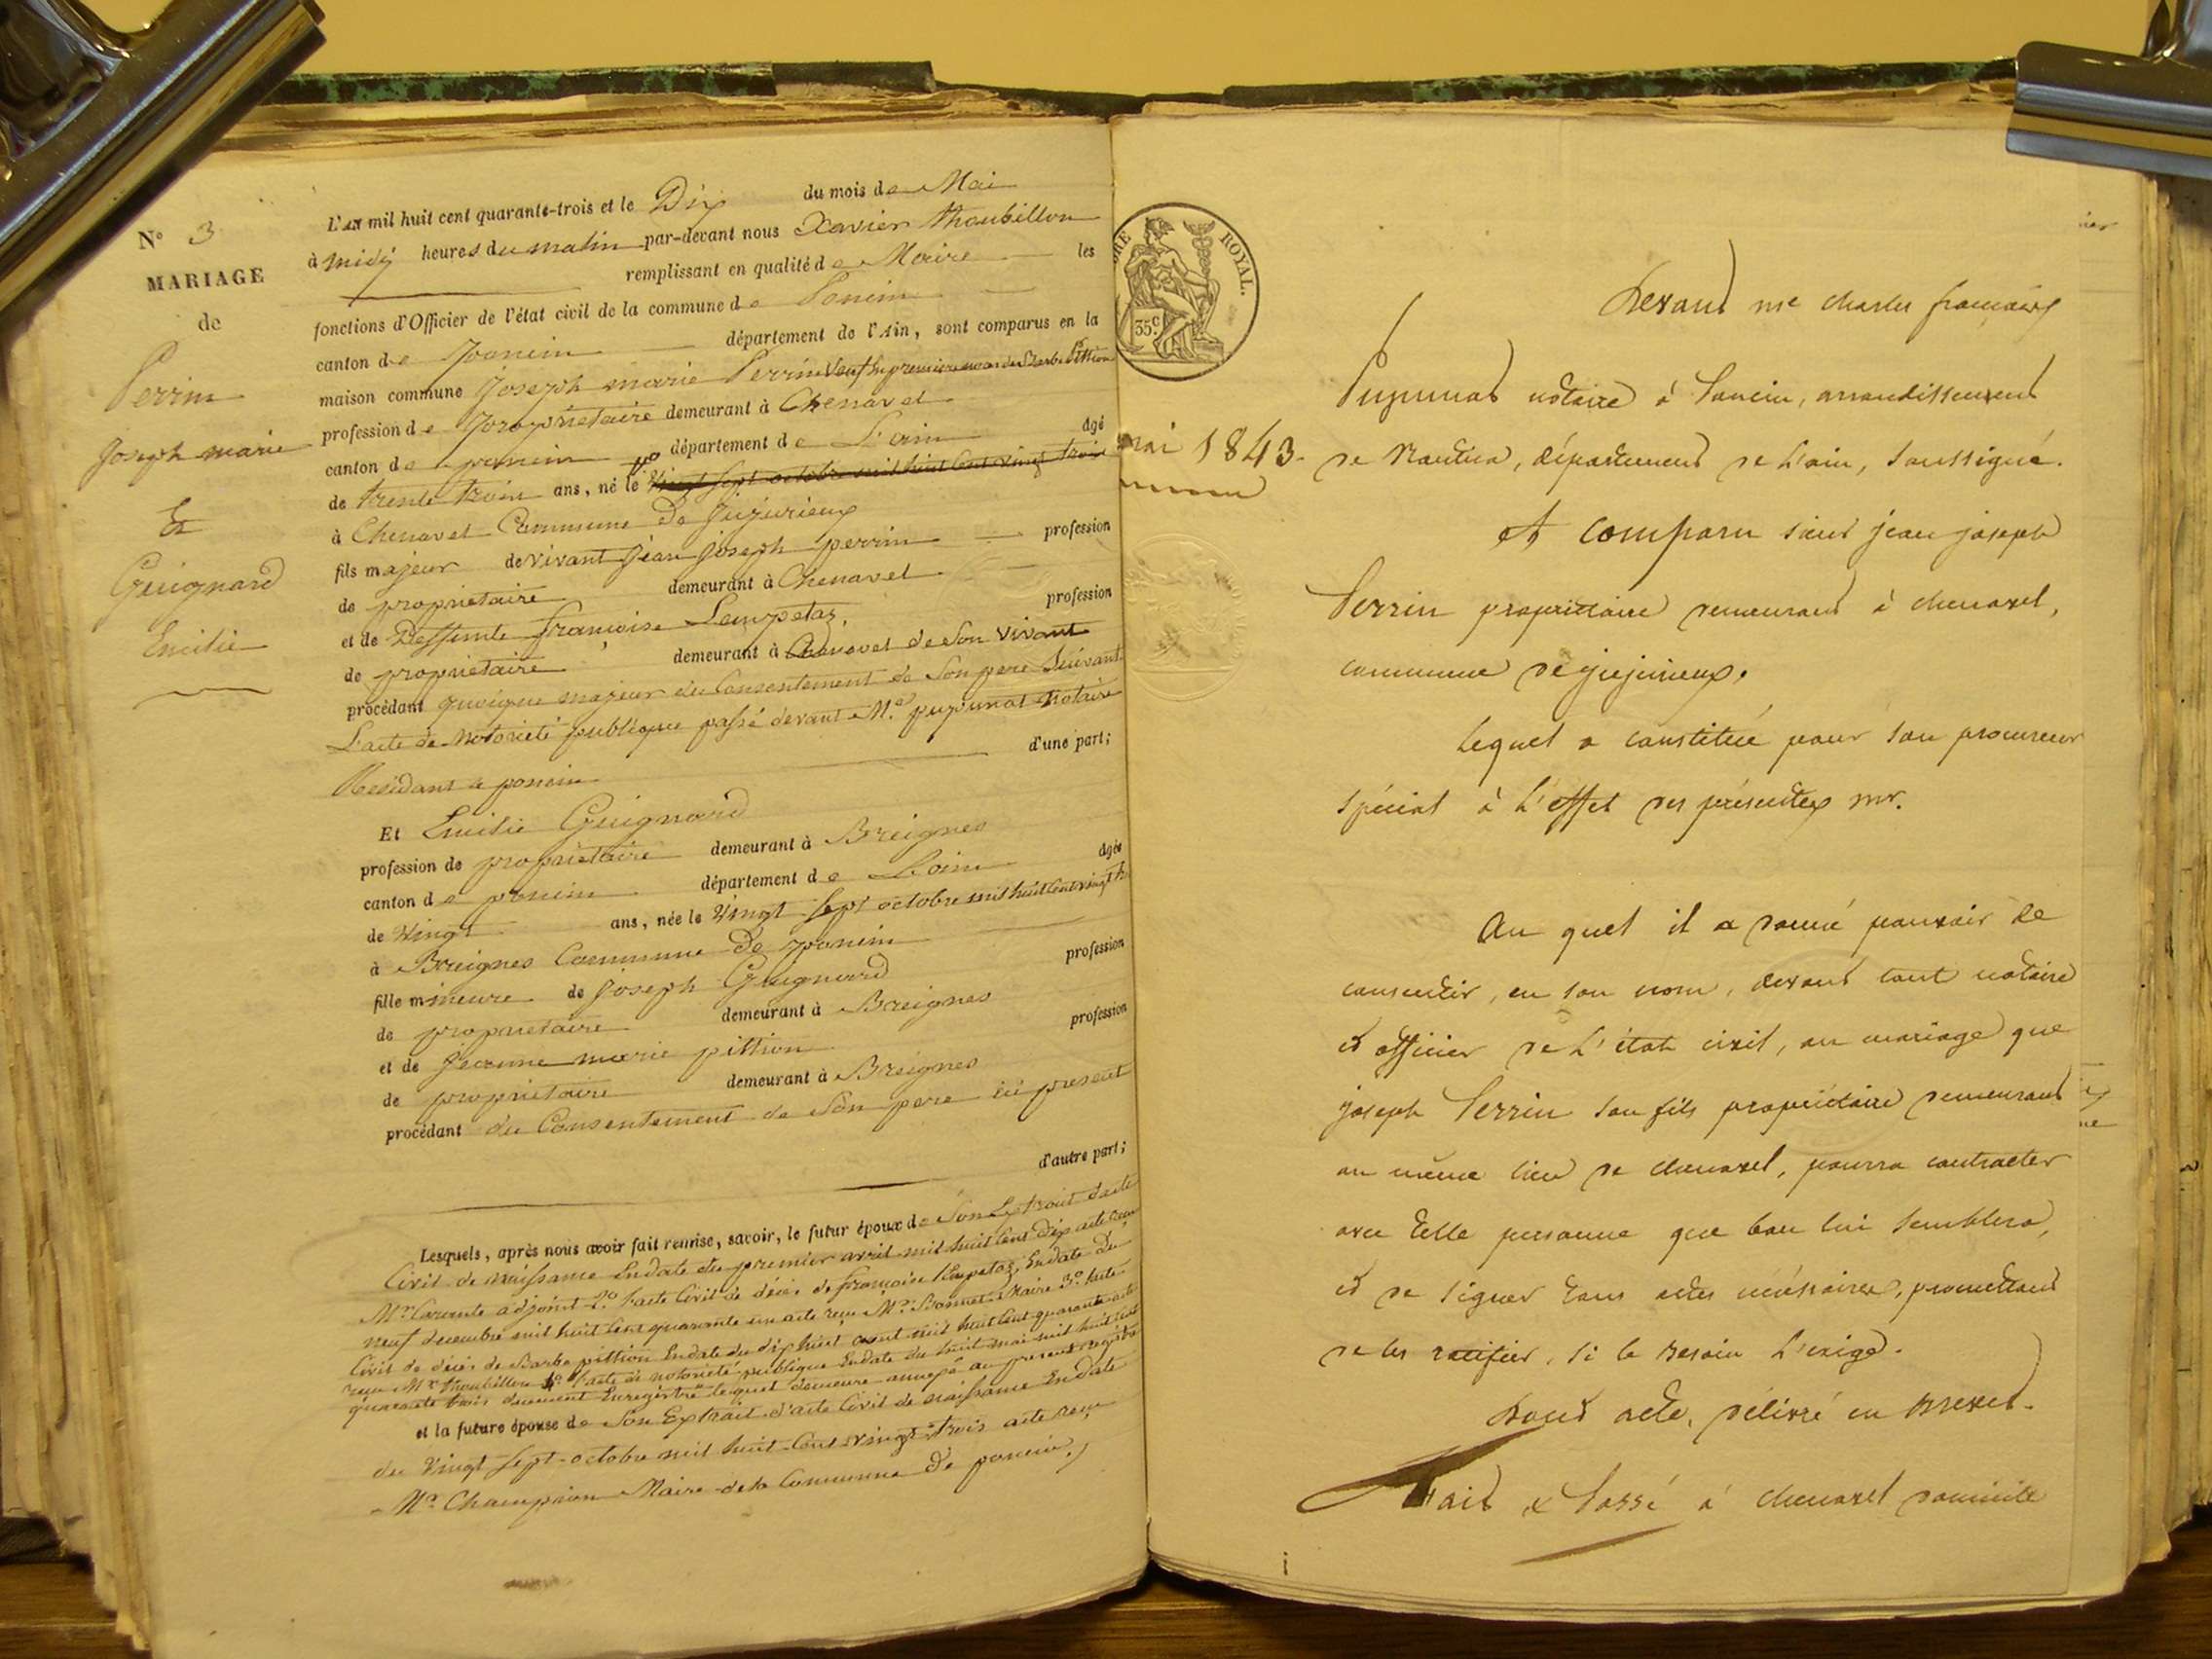 N° 3
MARIAGE
de
Perrin
Joseph marie
Et
Guignard
Emilie
L'an mil huit cent quarante-trois et le Dix du mois de Mai
à midi heures du matin par-devant nous Xavier Thoubillon
remplissant en qualité de Maire les
fonctions d'Officier de l'état civil de la commune de Poncin
canton de poncin département de l'Ain, sont comparus en la
maison commune Joseph marie Perrin veuf en premiere noce de Barbe Pittion
profession de proprietaire demeurant à Chenavel
canton de poncin département de L'ain âgé
de trente trois ans, né le vingt sept octobre mil huit cent vingt trois
à Chenavel Commune de Jujurieux
fils majeur de vivant Jean joseph perrin profession
de proprietaire demeurant à Chenavel
et de Deffunte françoise Lempetaz profession
de proprietaire demeurant à Chenavel de son vivant
procédant quoique majeur du Consentement de Son pere Suivant
L'acte de Notorieté publique passé devant Me. pupunat Notaire
Residant a poncin d'une part;
Et Emilie Guignard
profession de proprietaire demeurant à Breignes
canton de poncin département de L'ain âgée
de Vingt ans, née le Vingt Sept octobre mil huit Cent vingt
à Breignes Commune de poncin
fille mineure de Joseph Guignard profession
de proprietaire demeurant à Breignes
et de Jeanne marie pittion profession
de proprietaire demeurant à Breignes
procédant du Consentement de Son pere ici present
d'autre part;
Lesquels, après nous avoir fait remise, savoir, le futur époux de Son Extrait d'acte
Civil de naissance En date du premier avril mil huit Cent Dix acte reçu
Mr. adjoint 2° L'acte Civil de décès de françoise Lempetaz, En date du
neuf decembre mil huit Cent quarante un acte reçu Mr. Bonnet Maire 3° L'acte
Civil de décès de Barbe pittion En date du dix huit aout mil huit Cent quarante acte
reçu Mr Thoubillon 4° L'acte de notorieté publique En date du huit mai mil huit Cent
quarante trois duement Enregistré lequel demeure annexé au present registre
et la future épouse de Son Extrait d'acte Civil de naissance En date
du Vingt Sept octobre mil huit Cent vingt trois acte reçu
Mr. Champion Maire de la Commune de poncin.
ROYAL.
35c
mai 1843.
Devant me charles françois
Pupunat notaire à Poncin, arrondissement
de Nantua, département de l'ain, soussigné.
A comparu sieur jean joseph
Perrin propriétaire demeurant à chenavel,
commune de jujurieux.
Lequel a constitué pour son procureur
spécial à l'effet des présentes mr.
Au quel il a donné pouvoir de
consentir, en son nom, devant tout notaire
et officier de l'état civil, au mariage que
joseph Perrin son fils propriétaire demeurant
au même lieu de chenavel, pourra contracter
avec telle personne que bon lui semblera,
et de signer tous actes nécessaires, promettant
de les ratifier, si le besoin l'exige.
Dont acte, délivré en Brevet.
Fait & Passé à chenavel domicile